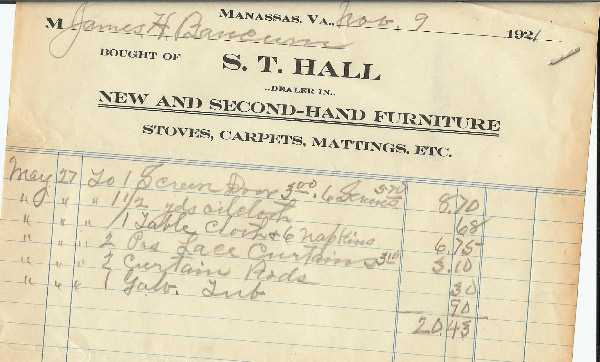 MANASSAS, VA., Nov. 9 1921
M James H.
BOUGHT OF S. T. HALL
..DEALER IN..
NEW AND SECOND-HAND FURNITURE
STOVES, CARPETS, MATTINGS, ETC.
May 27 To 1 Screen Door 3.00. 6 Screens 5.70 8.70
" " " 1 1/2 yds oilcloth 68
" " " 1 Table Cloth & 6 Napkins 6.75
" " " 2 Prs Lace Curtains 3.10 3.10
" " " 2 Curtain Rods 30
" " " 1 Galv. Tub 90
20.43